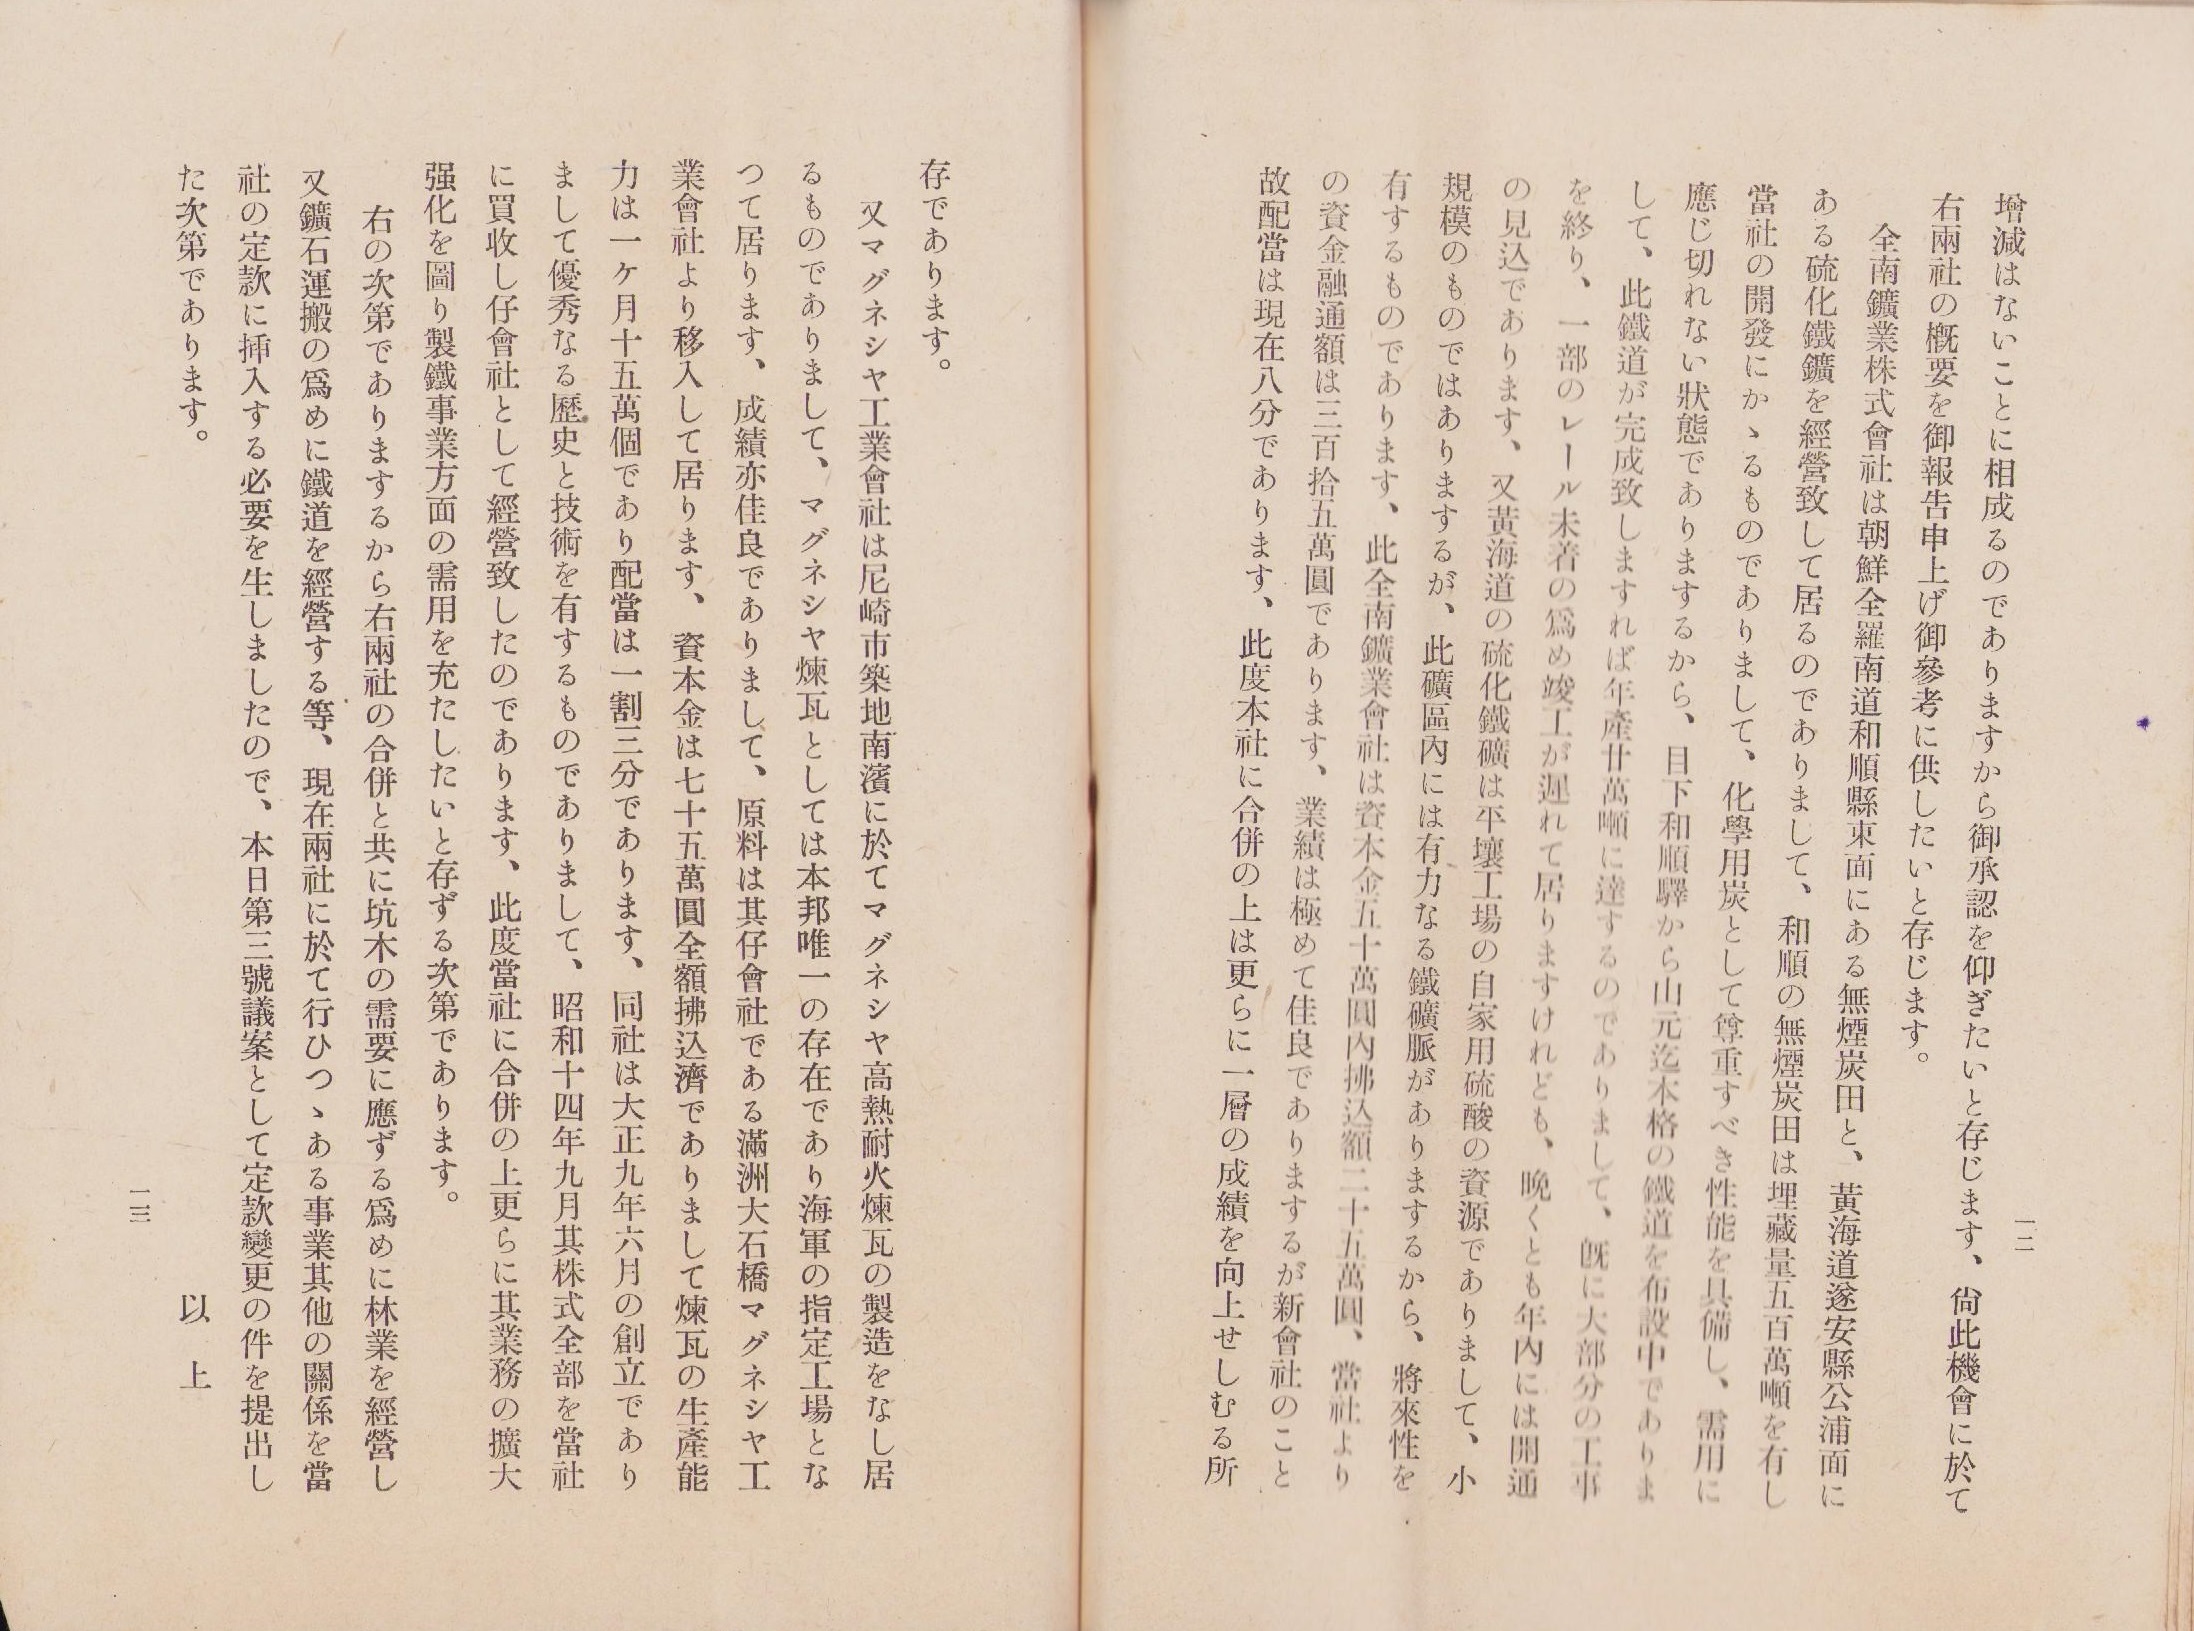 增減はないことに相成るのでありますから御承認を仰ぎたいと存じます、尙此機會に於て
右兩社の槪要を御報告申上げ御參考に供したいと存じます。
全南鑛業株式會社は朝鮮全羅南道和順縣東面にある無煙炭田と、黃海道遂安縣公浦面に
ある硫化鐵鑛を經營致して居るのでありまして、和順の無煙炭田は埋藏量五百萬噸を有し
當社の開發にかゝるものでありまして、化學用炭として尊重すべき性能を具備し、需用に
應じ切れない狀態でありまするから、目下和順驛から山元迄本格の鐵道を布設中でありま
して、此鐵道が完成致しますれば年產廿萬噸に達するのでありまして、旣に大部分の工事
を終り、一部のレール未着の爲め竣工が遲れて居りますけれども、晩くとも年內には開通
の見込であります、又黃海道の硫化鐵礦は平壤工場の自家用硫酸の資源でありまして、小
規模のものではありまするが、此礦區內には有力なる鐵礦脈がありまするから、將來性を
有するものであります、此全南鑛業會社は資本金五十萬圓內拂込額二十五萬圓、當社より
の資金融通額は三百拾五萬圓であります、業績は極めて佳良でありまするが新會社のこと
故配當は現在八分であります、此度本社に合併の上は更らに一層の成績を向上せしむる所
一二
存であります。
又マグネシヤ工業會社は尼崎市築地南濱に於てマグネシヤ高熱耐火煉瓦の製造をなし居
るものでありまして、マグネシヤ煉瓦としては本邦唯一の存在であり海軍の指定工場とな
つて居ります、成績亦佳良でありまして、原料は其仔會社である滿洲大石橋マグネシヤ工
業會社より移入して居ります、資本金は七十五萬圓全額拂込濟でありまして煉瓦の生產能
力は一ケ月十五萬個であり配當は一割三分であります、同社は大正九年六月の創立であり
まして優秀なる歷史と技術を有するものでありまして、昭和十四年九月其株式全部を當社
に買收し仔會社として經營致したのであります、此度當社に合併の上更らに其業務の擴大
强化を圖り製鐵事業方面の需用を充たしたいと存ずる次第であります。
右の次第でありまするから右兩社の合併と共に坑木の需要に應ずる爲めに林業を經營し
又鑛石運搬の爲めに鐵道を經營する等、現在兩社に於て行ひつゝある事業其他の關係を當
社の定款に揷入する必要を生しましたので、本日第三號議案として定款變更の件を提出し
た次第であります。
以上
一三